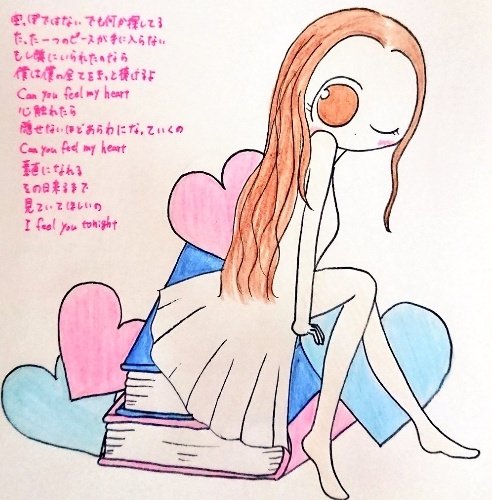 空っぽではない でも何か探してる
たった一つのピースが手に入らない
もし隣にいられたのなら
僕は僕の全てをきっと捧げるよ
Can you feel my heart
心触れたら
隠せないほどあらわになっていくの
Can you feel my heart
素直になれる
その日来るまで
見ていてほしいの
I feel you tonight